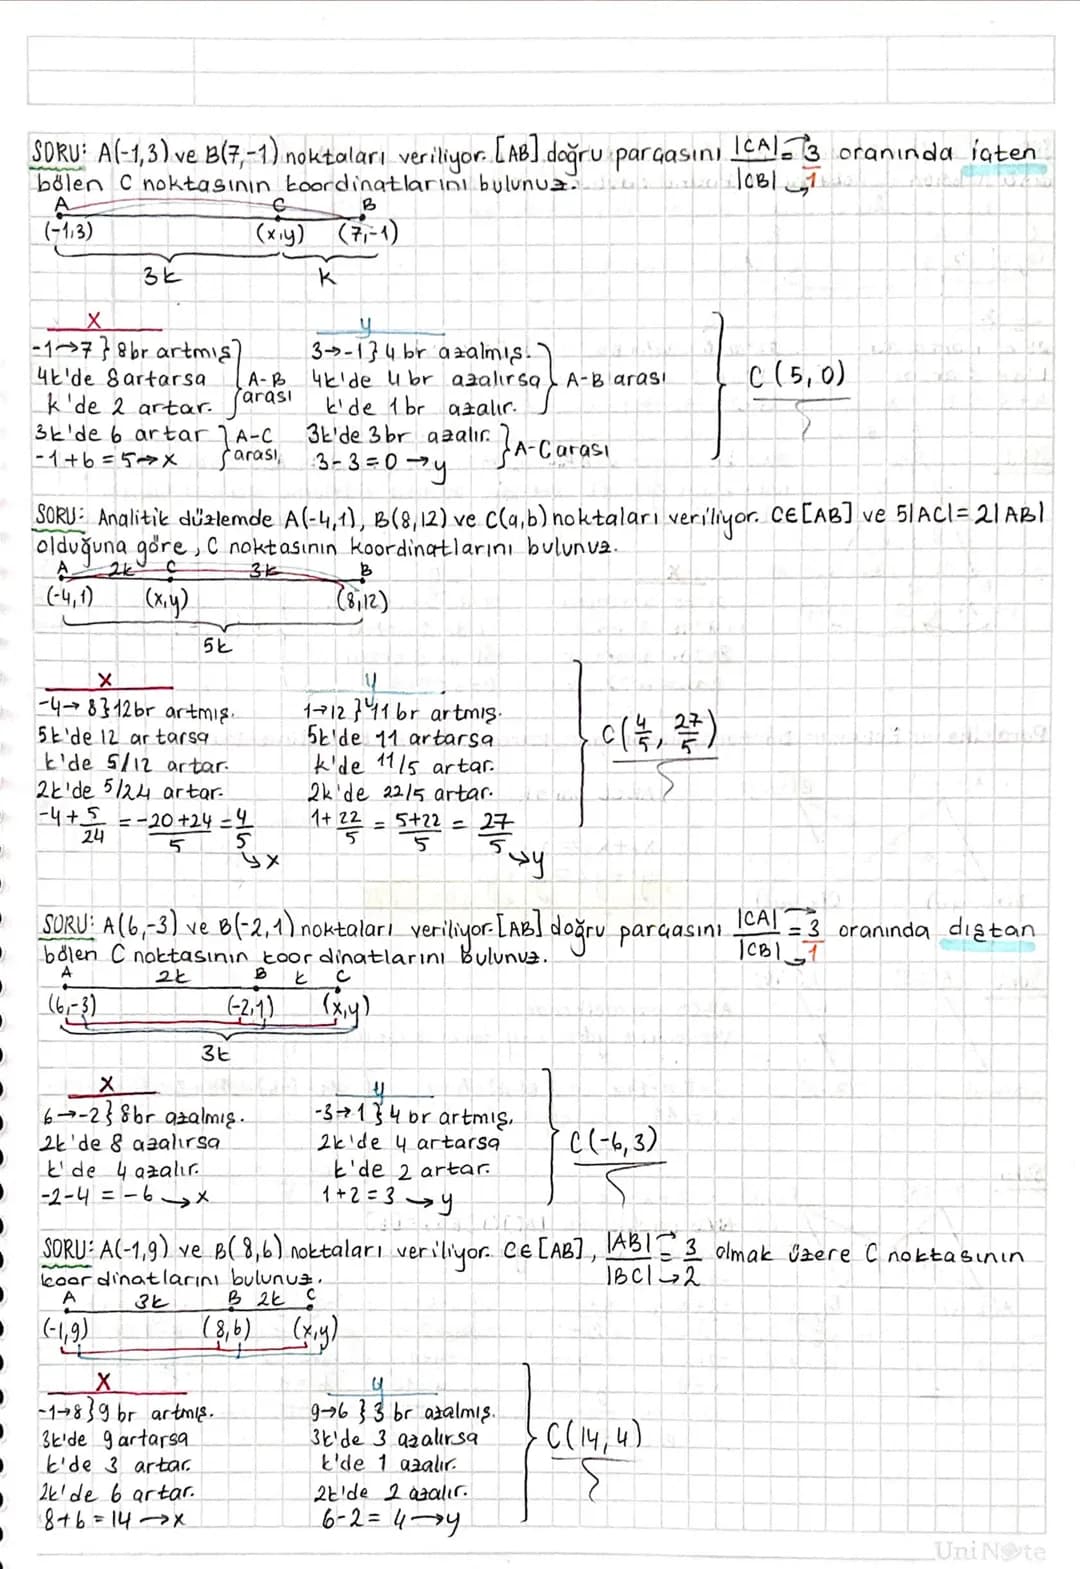 SORU: A(-1,3) ve B(7,-1) noktaları veriliyor. [AB] doğru parçasını |CA|/|CB| = 3/1 oranında içten
bölen C noktasının koordinatlarını bulunuz.
A C B
(-1,3) (x,y) (7,-1)
3k k
x
-1→7 } 8br artmış
4k'de 8 artarsa
k'de 2 artar.
A-B arası
3k'de 6 artar
-1+6=5→x
A-C arası
y
3→-1 } 4 br azalmış.
4k'de 4 br azalırsa
k'de 1 br azalır.
A-B arası
3k'de 3 br azalır.
3-3=0→y
A-C arası
C(5,0)
SORU: Analitik düzlemde A(-4,1), B(8,12) ve C(a,b) noktaları veriliyor. C∈[AB] ve 5|AC|=2|AB|
olduğuna göre, C noktasının koordinatlarını bulunuz.
A 2k C 3k B
(-4,1) (x,y) (8,12)
5k
x
-4→8 } 12br artmış.
5k'de 12 artarsa
k'de 5/12 artar.
2k'de 5/24 artar.
-4+5/24 = -20+24/5 = 4/5
→x
y
1→12 } 11 br artmış.
5k'de 11 artarsa
k'de 11/5 artar.
2k'de 22/5 artar.
1+22/5 = 5+22/5 = 27/5
→y
C(4/5, 27/5)
SORU: A(6,-3) ve B(-2,1) noktaları veriliyor. [AB] doğru parçasını |CA|/|CB| = 3/1 oranında dıştan
bölen C noktasının koordinatlarını bulunuz.
A 2k B k C
(6,-3) (-2,1) (x,y)
3k
x
6→-2 } 8br azalmış.
2k'de 8 azalırsa
k'de 4 azalır.
-2-4 = -6→x
y
-3→1 } 4 br artmış.
2k'de 4 artarsa
k'de 2 artar.
1+2=3→y
C(-6,3)
SORU: A(-1,9) ve B(8,6) noktaları veriliyor. C∈[AB], |AB|/|BC| = 3/2 olmak üzere C noktasının
koordinatlarını bulunuz.
A 3k B 2k C
(-1,9) (8,6) (x,y)
x
-1→8 } 9 br artmış.
3k'de 9 artarsa
k'de 3 artar.
2k'de 6 artar.
8+6=14→x
y
9→6 } 3 br azalmış.
3k'de 3 azalırsa
k'de 1 azalır.
2k'de 2 azalır.
6-2=4→y
C(14,4)
UniNote